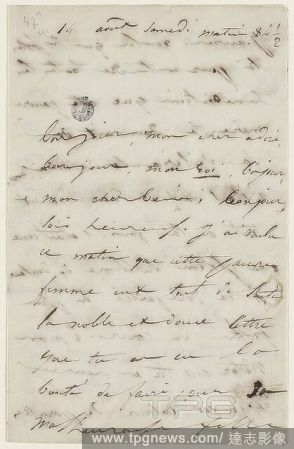 14 août samedi matin 8 h ½
Bonjour, mon cher adoré
bonjour, mon roi, bonjour,
mon cher bien, bonjour,
sois heureux. j'ai voulu
ce matin que cette pauvre
femme eut tout de suite
la noble et douce lettre
que tu as eu la
bonté de faire pour
malheureuse fille
TPG
www.tpgnews.com / 達志影像